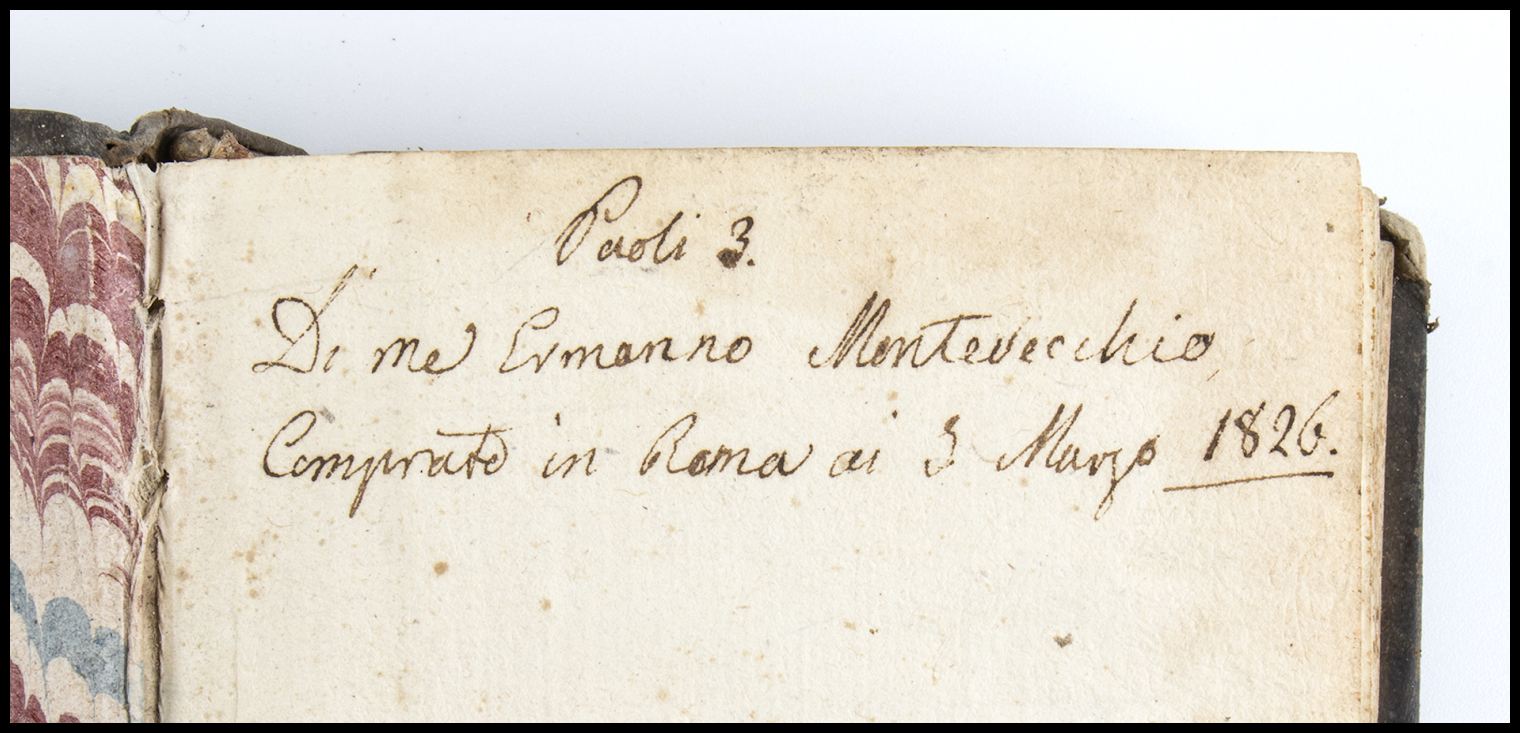 Paoli 3.
Di me Ermanno Montevecchio
Comprato in Roma ai 3 Marzo 1826.